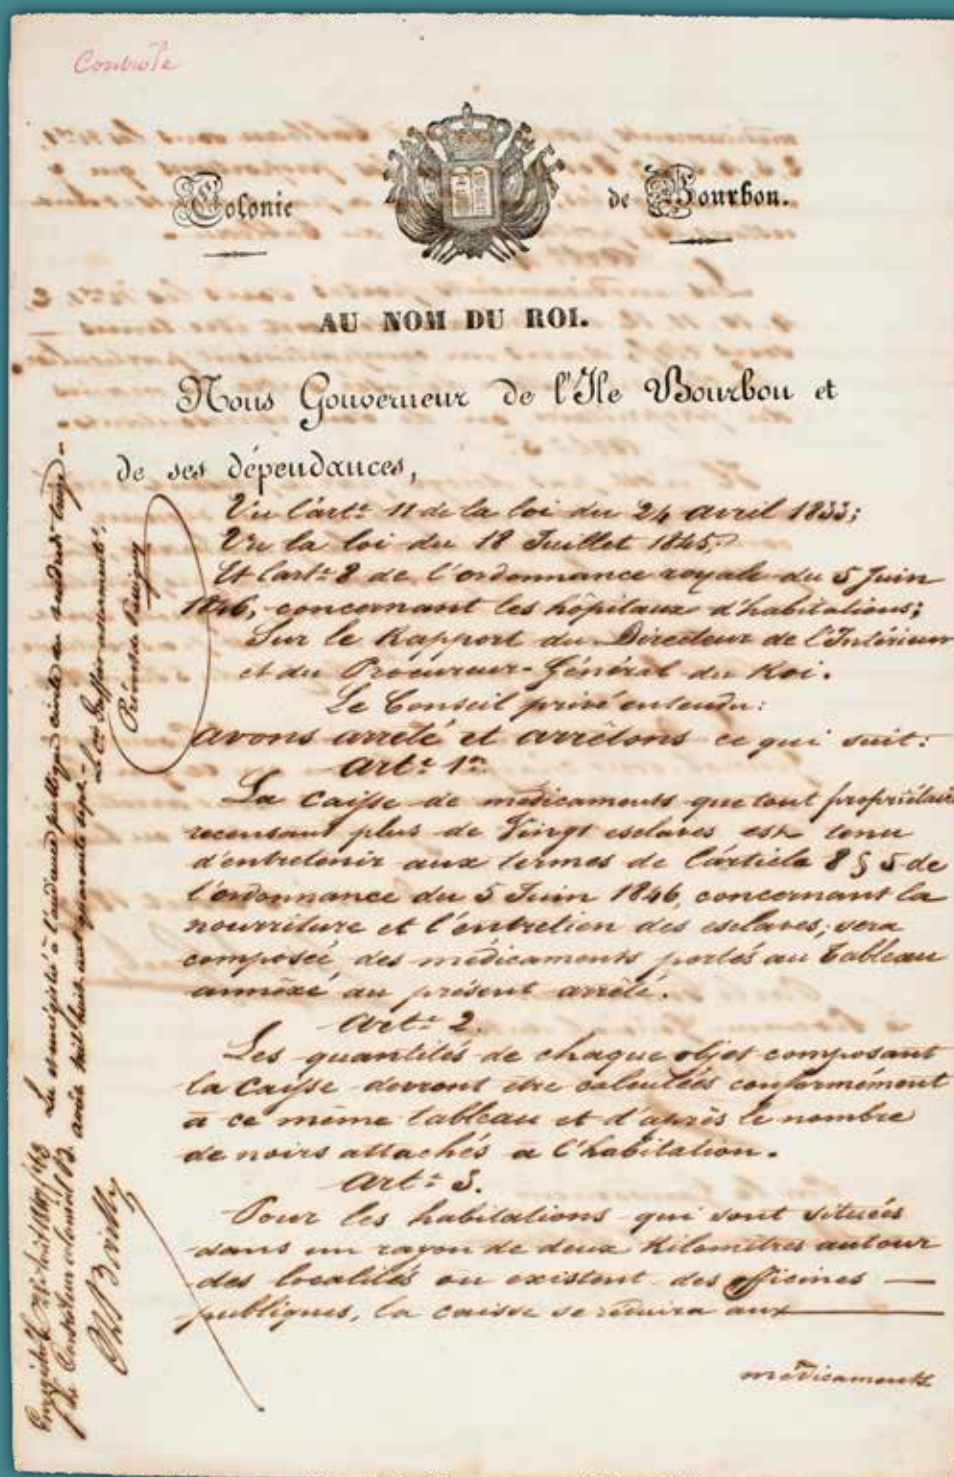 Contrôle
Colonie de Bourbon.
AU NOM DU ROI.
Nous Gouverneur de l'Ile Bourbon et
de ses dépendances,
Vu l'art: 11 de la loi du 24 avril 1833;
Vu la loi du 18 Juillet 1845;
Et l'art: 8 de l'ordonnance royale du 5 Juin
1846, concernant les hôpitaux d'habitations;
Sur le Rapport du Directeur de l'Intérieur
et du Procureur-Général du Roi.
Le Conseil privé entendu:
avons arrêté et arrêtons ce qui suit:
Art: 1er
La caisse de médicaments que tout propriétaire
recensant plus de Vingt esclaves est tenu
d'entretenir aux termes de l'article 8 § 5 de
l'ordonnance du 5 Juin 1846, concernant la
nourriture et l'entretien des esclaves, sera
composée des médicaments portés au tableau
annexé au présent arrêté.
Art: 2.
Les quantités de chaque objet composant
la caisse devront être calculées conformément
à ce même tableau et d'après le nombre
de noirs attachés à l'habitation.
Art: 3.
Pour les habitations qui sont situées
dans un rayon de deux Kilomètres autour
des localités où existent des officines
publiques, la caisse se réduira aux
médicaments
Lu et enregistré à l'audience publique
Le Contrôleur colonial